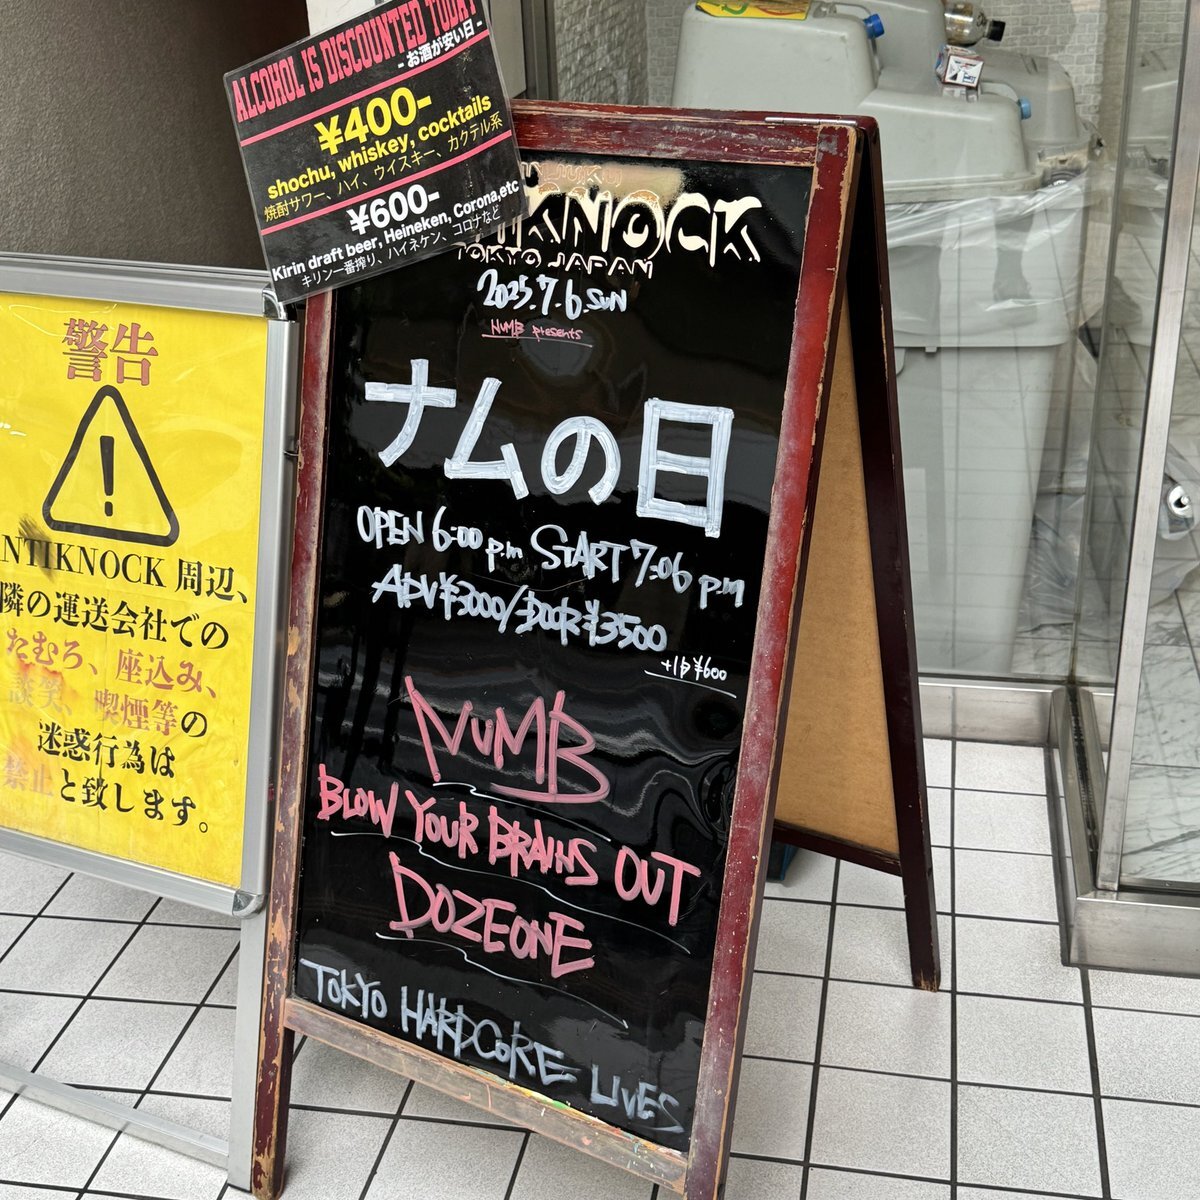 ALCOHOL IS DISCOUNTED TODAY
- お酒が安い日 -
¥400-
shochu, whiskey, cocktails
焼酎サワー、ハイ、ウイスキー、カクテル系
¥600-
Kirin draft beer, Heineken, Corona,etc
キリン一番搾り、ハイネケン、コロナなど
KNOCK
TOKYO JAPAN
2025.7.6.SUN
NUMB presents
ナムの日
OPEN 6:00 p.m START 7:06 p.m
ADV¥3000/DOOR¥3500
+1D¥600
NUMB
BLOW YOUR BRAINS OUT
DOZEONE
TOKYO HARDCORE LIVES
警告
!
NTIKNOCK 周辺、
隣の運送会社での
たむろ、座込み、
談笑、喫煙等の
迷惑行為は
禁止と致します。